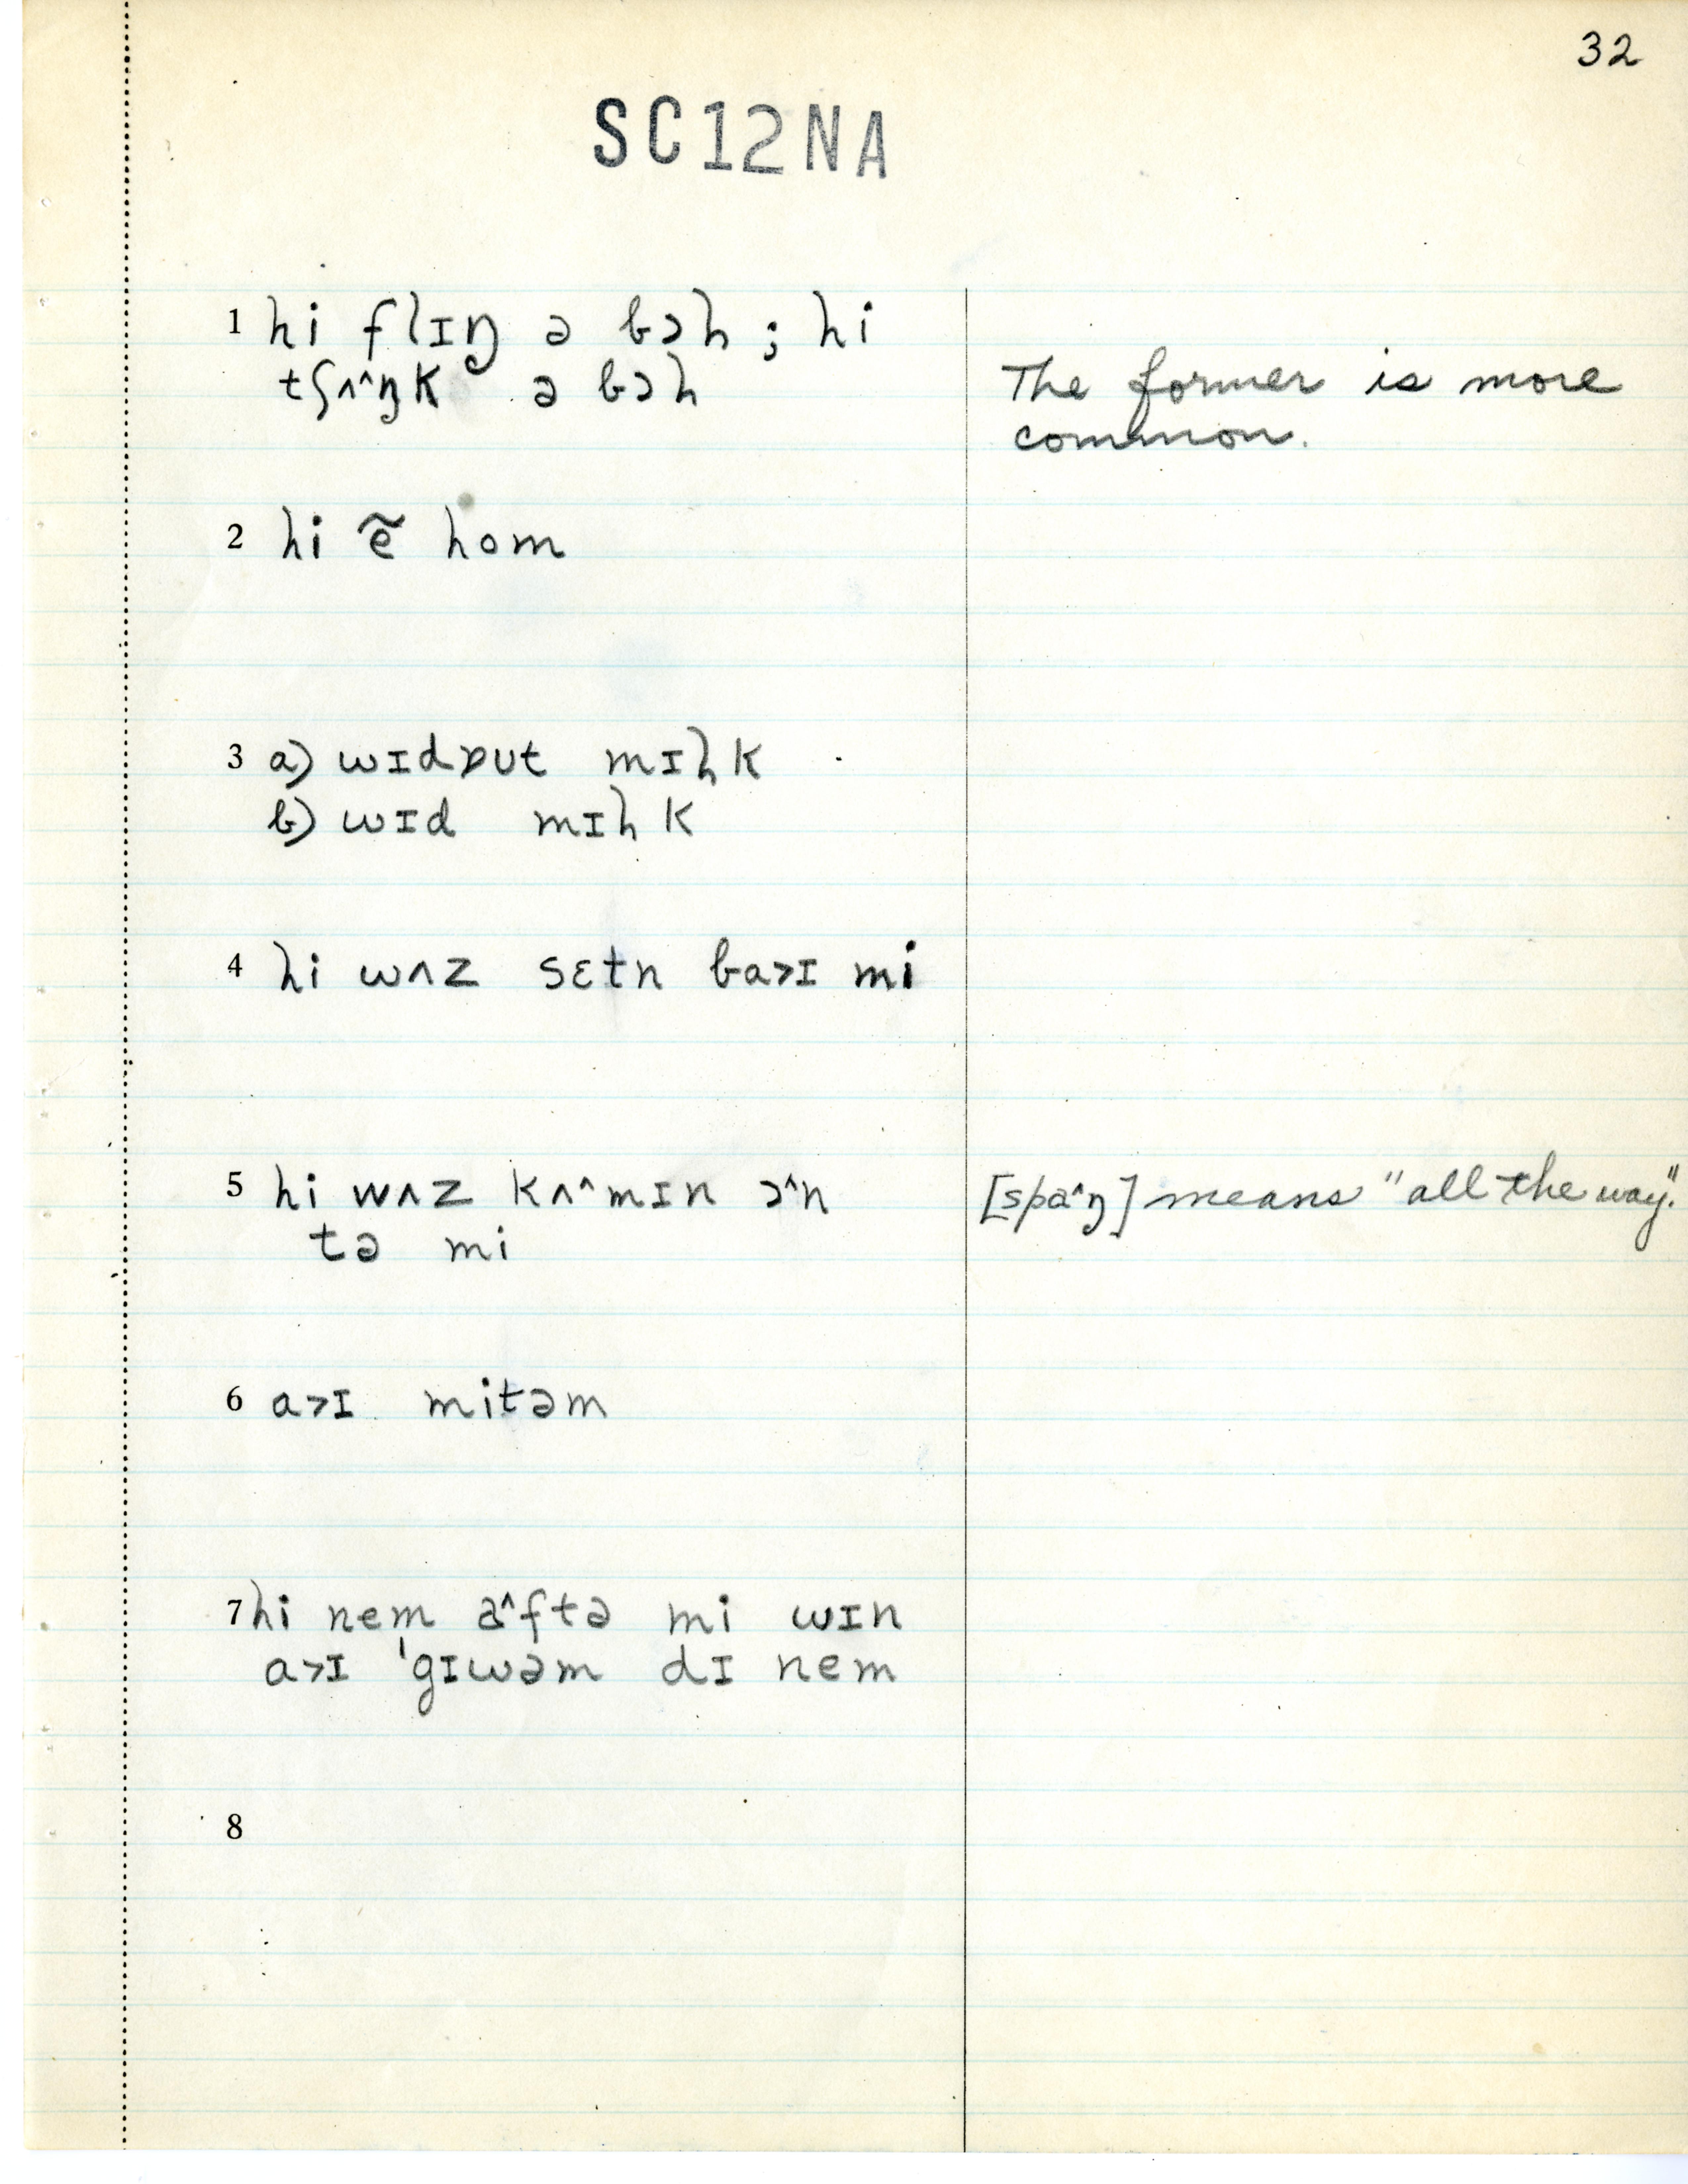 32
SC12NA
1 hi flɪŋ ə bɔɫ ; hi
tʃʌ^ŋk ə bɔɫ
The former is more
common.
2 hi ẽ hom
3 a) wɪdɒut mɪɫk
b) wɪd mɪɫk
4 hi wʌz sɛtn ba>ɪ mi
5 hi wʌz kʌ^mɪn ɔ^n
tə mi
[spa^ŋ] means "all the way".
6 a>ɪ mitəm
7 hi nem a^ftə mi wɪn
a>ɪ 'gɪwəm dɪ nem
8